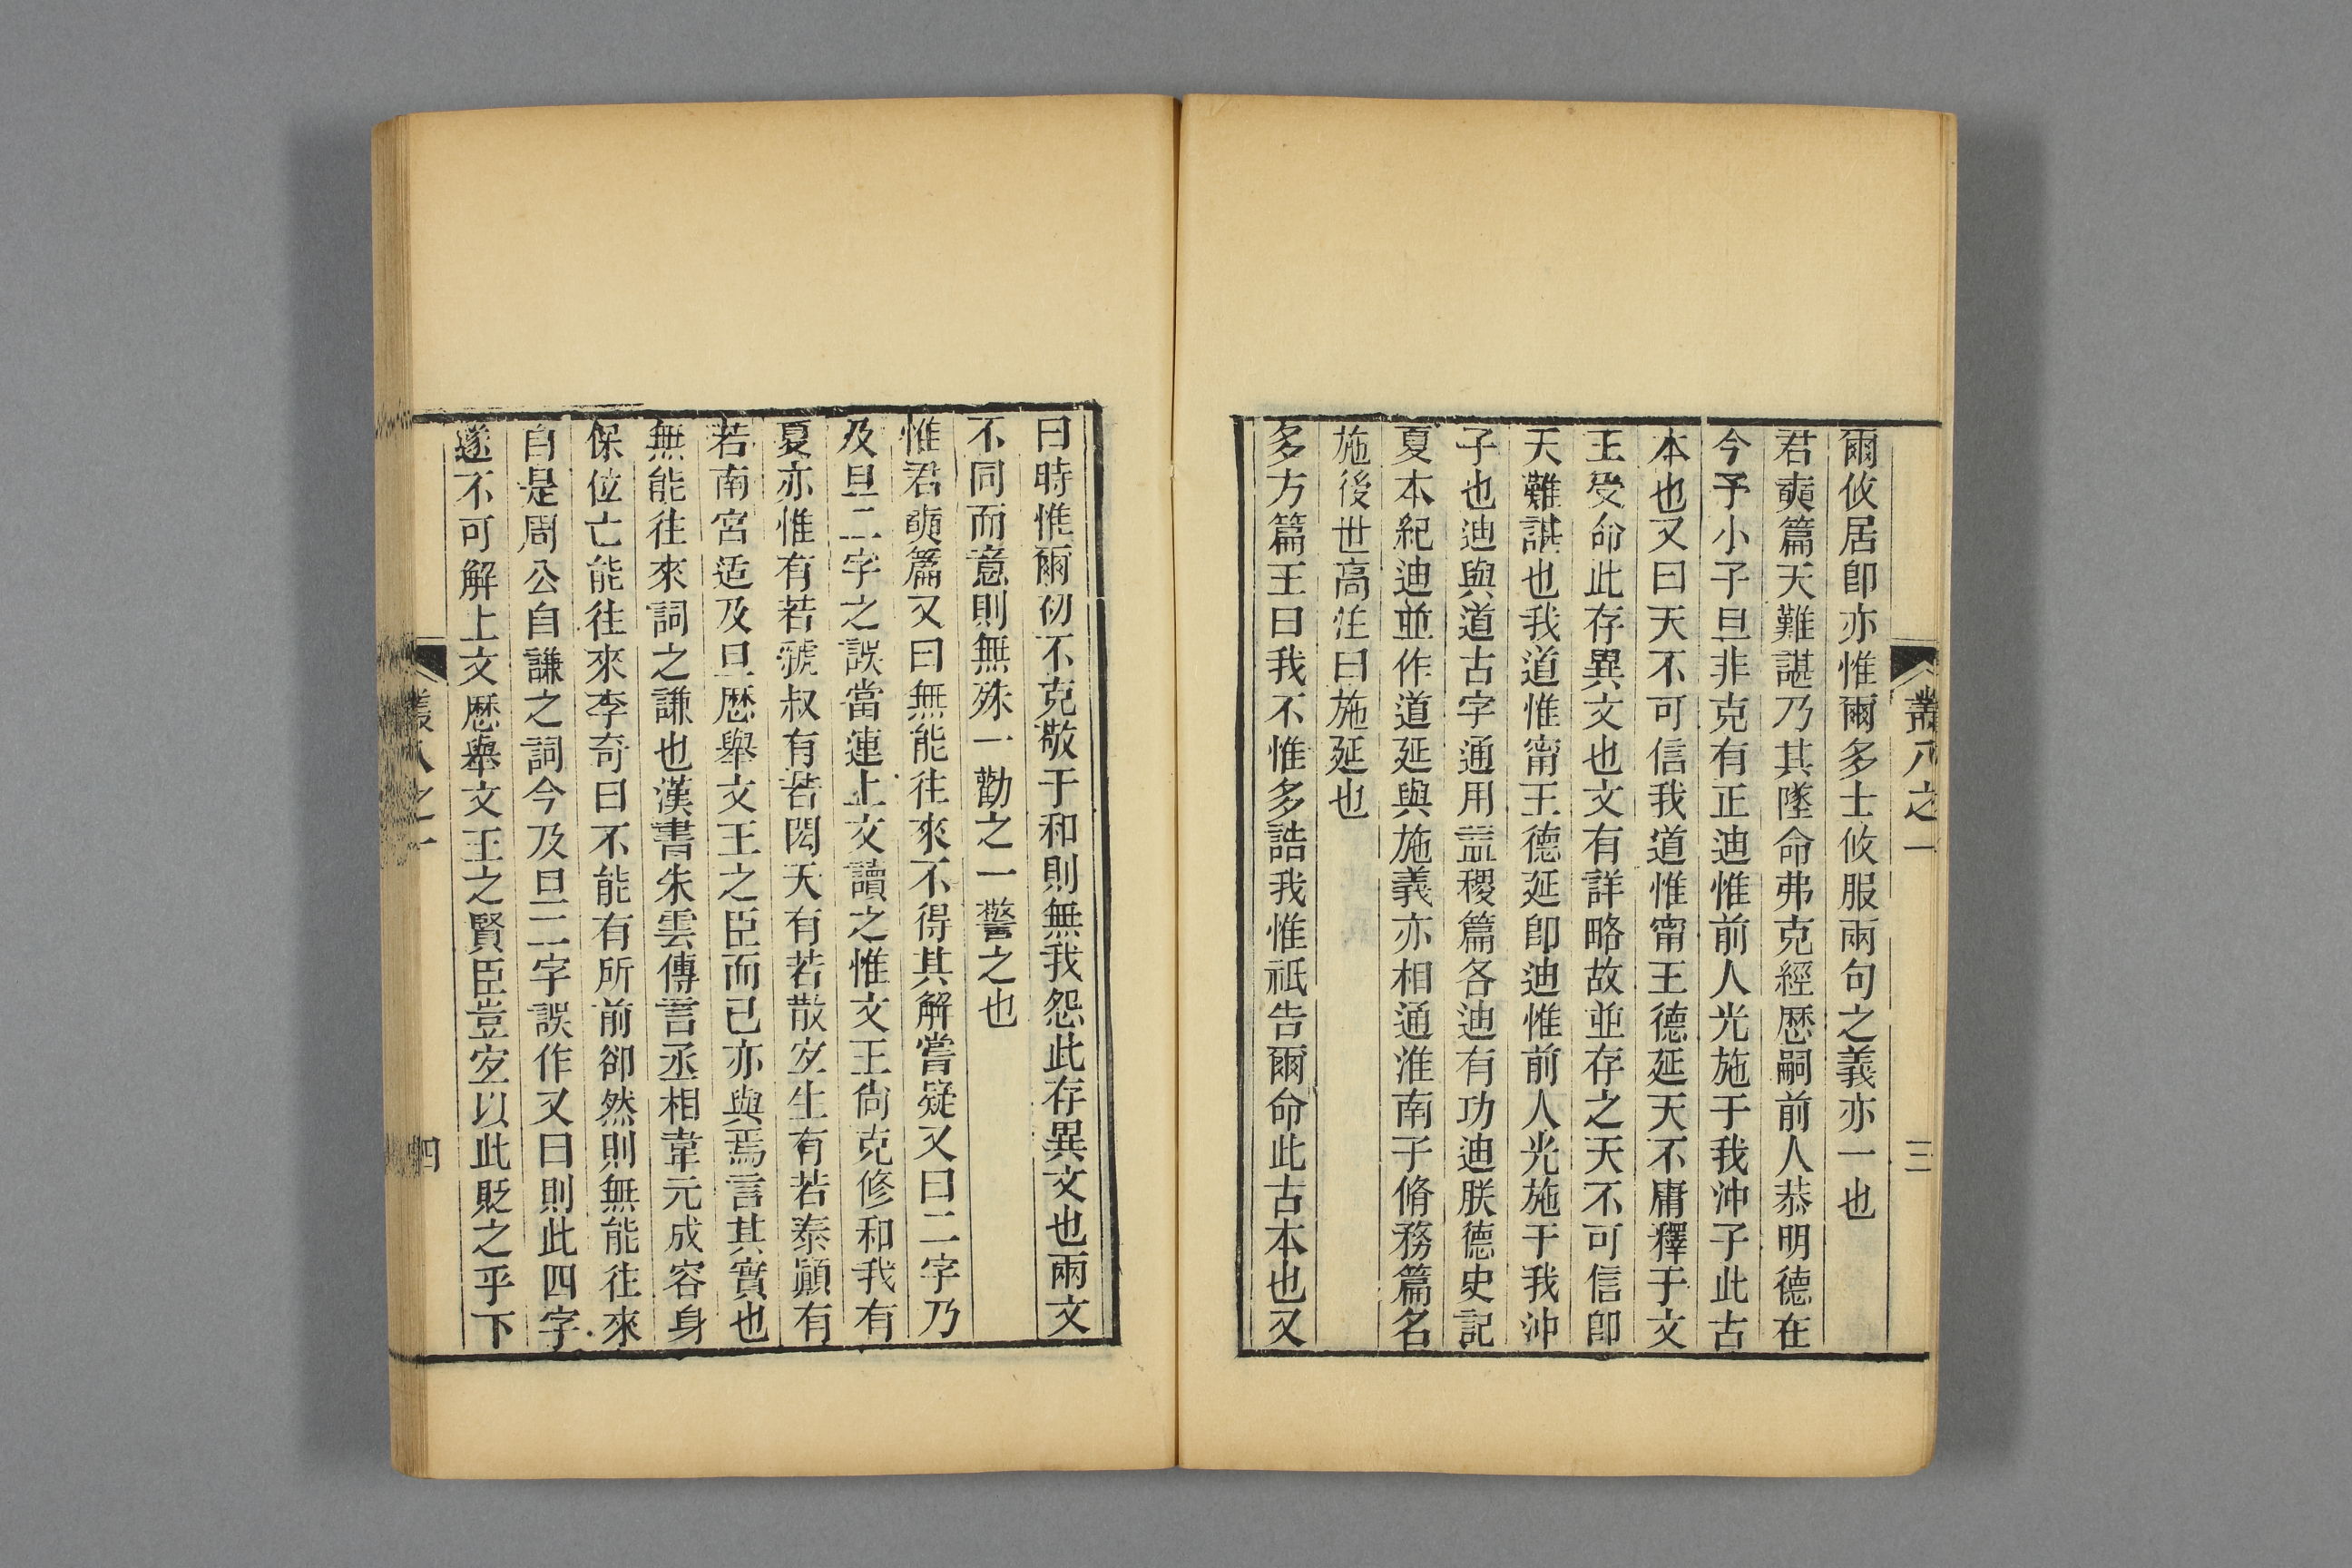 叢八之一
三
爾攸居卽亦惟爾多士攸服兩句之義亦一也
君奭篇天難諶乃其墜命弗克經歷嗣前人恭明德在
今予小子旦非克有正迪惟前人光施于我沖子此古
本也又曰天不可信我道惟甯王德延天不庸釋于文
王受命此存異文也文有詳略故並存之天不可信卽
天難諶也我道惟甯王德延卽迪惟前人光施于我沖
子也迪與道古字通用益稷篇各迪有功迪朕德史記
夏本紀迪並作道延與施義亦相通淮南子脩務篇名
施後世高注曰施延也
多方篇王曰我不惟多誥我惟祇告爾命此古本也又
曰時惟爾初不克敬于和則無我怨此存異文也兩文
不同而意則無殊一勸之一警之也
惟君奭篇又曰無能往來不得其解嘗疑又曰二字乃
及旦二字之誤當連上文讀之惟文王尙克修和我有
夏亦惟有若虢叔有若閎夭有若散宐生有若泰顚有
若南宮适及旦歷舉文王之臣而已亦與焉言其實也
無能往來詞之謙也漢書朱雲傳言丞相韋元成容身
保位亡能往來李奇曰不能有所前卻然則無能往來
自是周公自謙之詞今及旦二字誤作又曰則此四字
遂不可解上文歷舉文王之賢臣豈宐以此貶之乎下
叢八之一
四